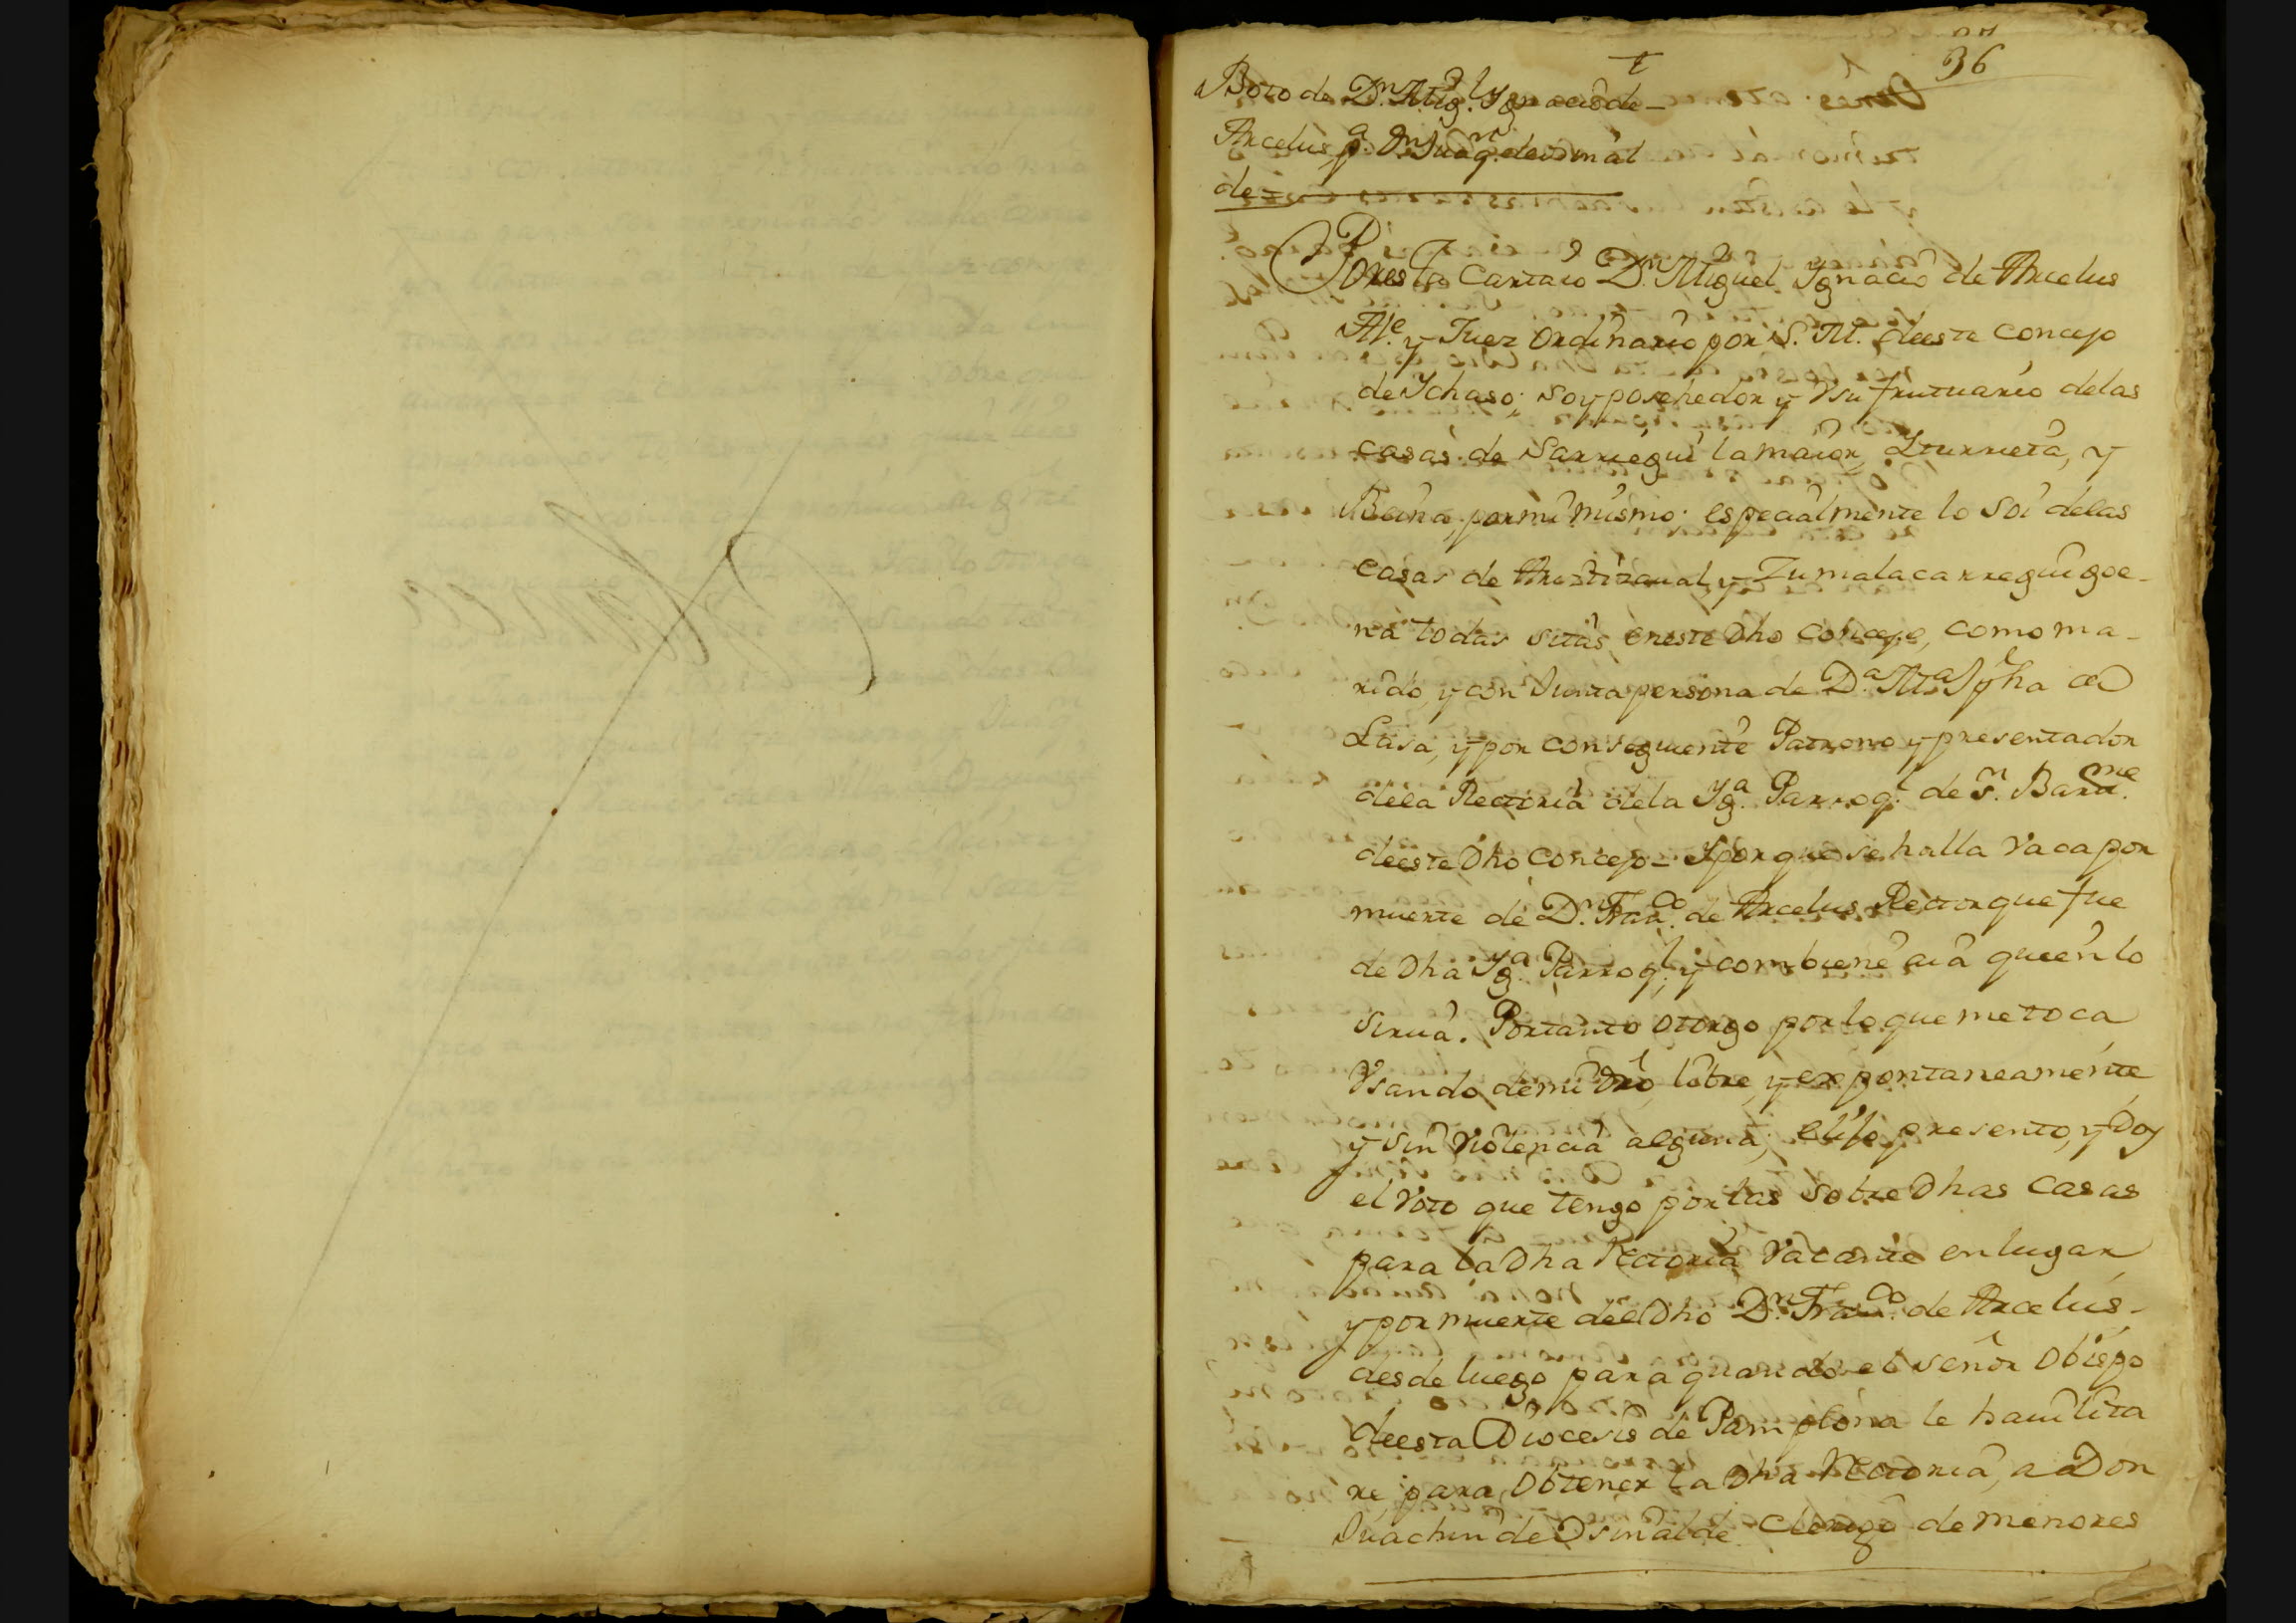 36
Boto de Dn. Migl. Ygnacio de
Arcelus pa. Dn. Juaqn. de Osinal
de
Por esta Carta io Dn. Miguel Ygnacio de Arcelus
Ale. y Juez Ordinario por S. M. de este Concejo
de Ychaso; soy posehedor y Vsu frutuario de las
casas de Sarriegui la maior, Yturrieta, y
por mi mismo; especialmente lo soi de las
casas de y Zumalacarregui goe-
na todas sitas en este Dho Concejo, como ma-
rido, y conjunta persona de Da. Ma. Jpha de
Lasa, y por consiguiente Patrono y presentador
de la Rectoria de la Yga. Parroql. de Sn. Barme.
de este Dho Concejo - Y porque se halla Vaca por
muerte de Dn. Franco. de Arcelus Rector que fue
de Dha Yga. Parroql; y combiene aia quien lo
sirua. Portanto otorgo por lo que me toca
Vsando de mi Dro, libre, y expontaneamente,
y sin Violencia alguna; elijo presento, y Doy
el Voto que tengo por las sobre Dhas casas
para la Dha Rectoria Vacante en lugar
y por muerte del Dho Dn. Franco. de Arcelus,
desde luego para quando el señor Obispo
de esta Diocesis de Pamplona le hauilita
re, para Obtener la Dha Rectoria, a Don
Juachin de Osinalde Clerigo de menores